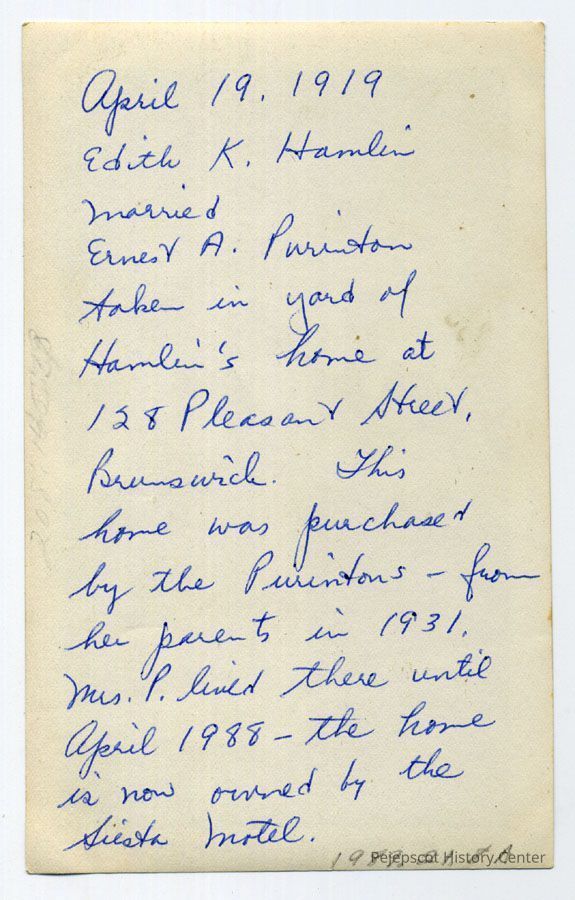 April 19, 1919
Edith K. Hamlin
married
Ernest A. Purinton
taken in yard of
Hamlin's home at
128 Pleasant Street,
Brunswick. This
home was purchased
by the Purintons – from
her parents in 1931.
Mrs. P. lived there until
April 1988 – the home
is now owned by the
Siesta Motel.
Pejepscot History Center